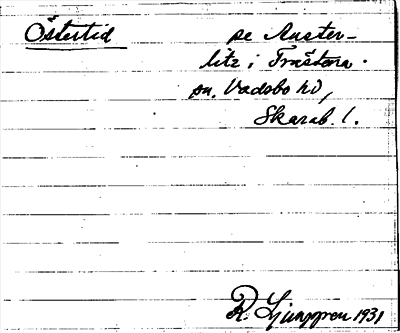 Östertid se Auster-
litz i Trästena
sn, Vadsbo hd,
Skarab. l.
R. Ljunggren 1931